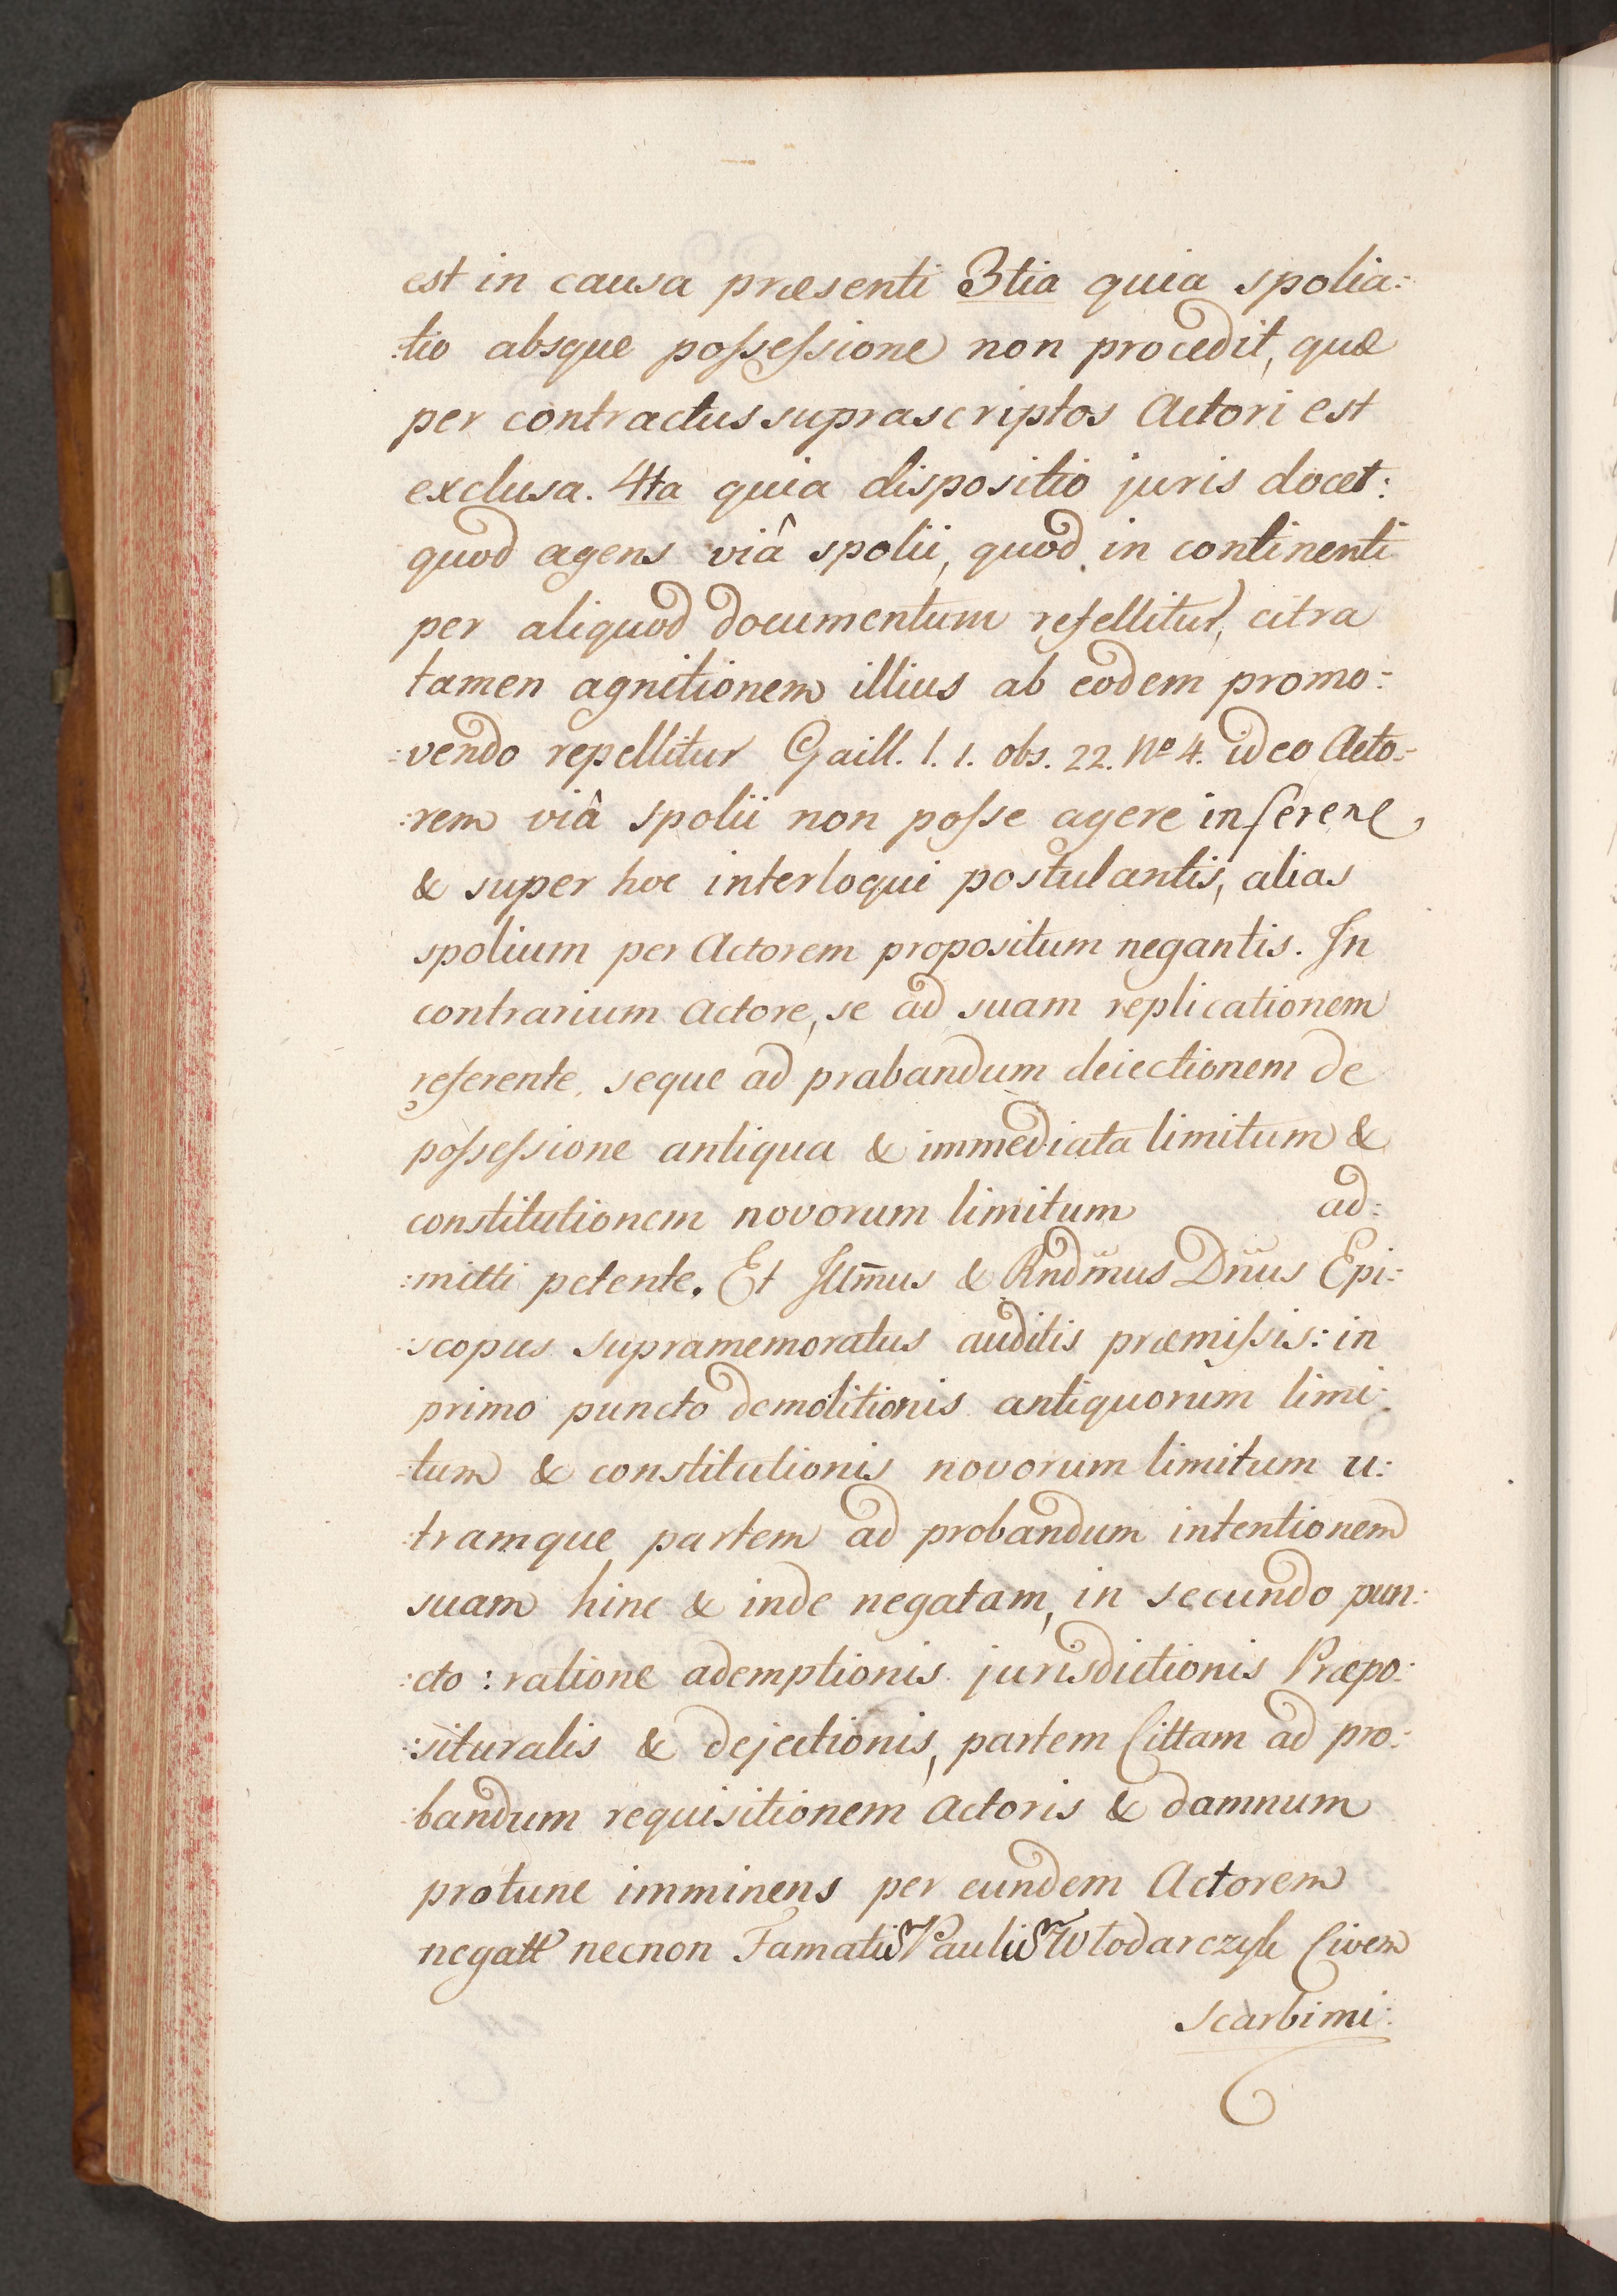 est in causa præsenti 3tia quia spolia:
:tio absque possessione non procedit, quæ
per contractus suprascriptos Actori est
exclusa. 4ta quia dispositio juris docet:
quod agens viâ spolii, quod in continenti
per aliquod documentum refellitur, citra
tamen agnitionem illius ab eodem promo:
:vendo repellitur Gaill. l. 1. obs. 22. No 4. ideo Acto:
:rem viâ spolii non posse agere inferene,
& super hoc interloqui postulantis, alias
spolium per Actorem propositum negantis. In
contrarium Actore, se ad suam replicationem
referente, seque ad prabandum deiectionem de
possessione antiqua & immediata limitum &
constitutionem novorum limitum ad:
:mitti petente. Et Illm̄us & Rndm̄us Dn̄us Epi:
:scopus supramemoratus auditis præmissis: in
primo puncto demolitionis antiquorum limi:
:tum & constitutionis novorum limitum u:
:tramque partem ad probandum intentionem
suam hinc & inde negatam, in secundo pun:
:cto: ratione ademptionis jurisdictionis Præpo:
:situralis & dejectionis, partem Cittam ad pro:
:bandum requisitionem Actoris & damnum
protunc imminens per eundem Actorem
negatt necnon Famatis Paulis Wlodarczyk Civem
Scarbimi: